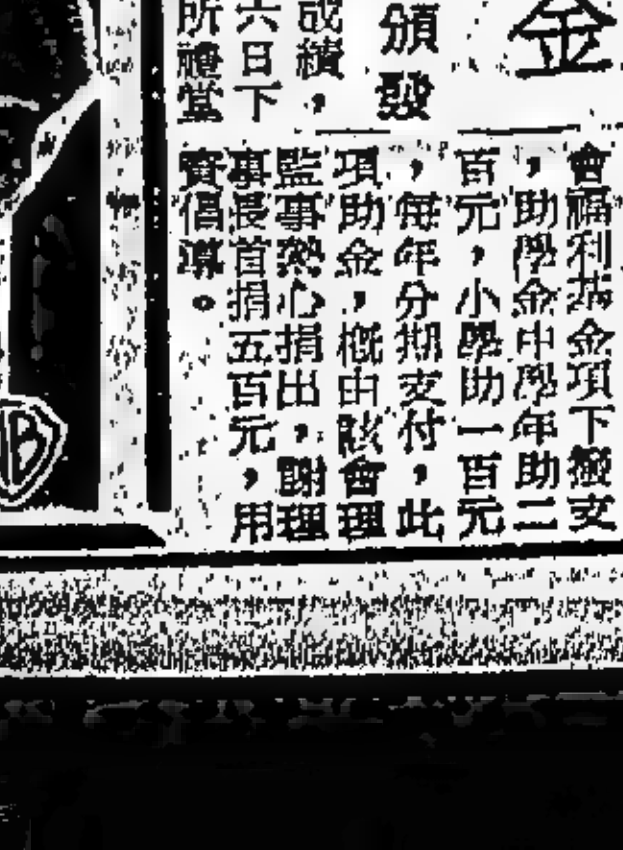 金
頒發
成績，
六日下
所禮堂
會福利基金項下撥支
，助學金中學年助二
百元，小學助一百元
，每年分期支付，此
項助金，概由該會理
監事熱心捐出，謝理
事長首捐五百元，用
資倡導。